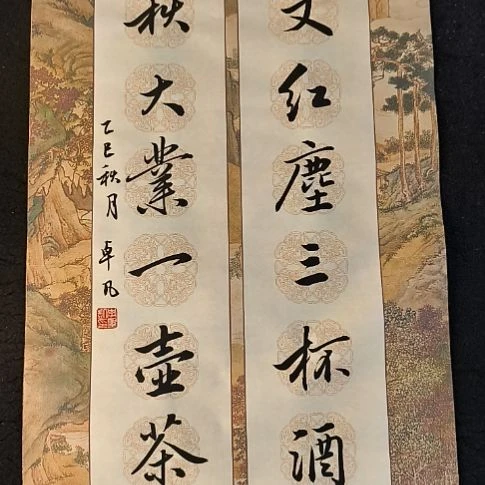 丈红塵三杯酒
秋大業一壺茶
乙巳秋月 卓凡